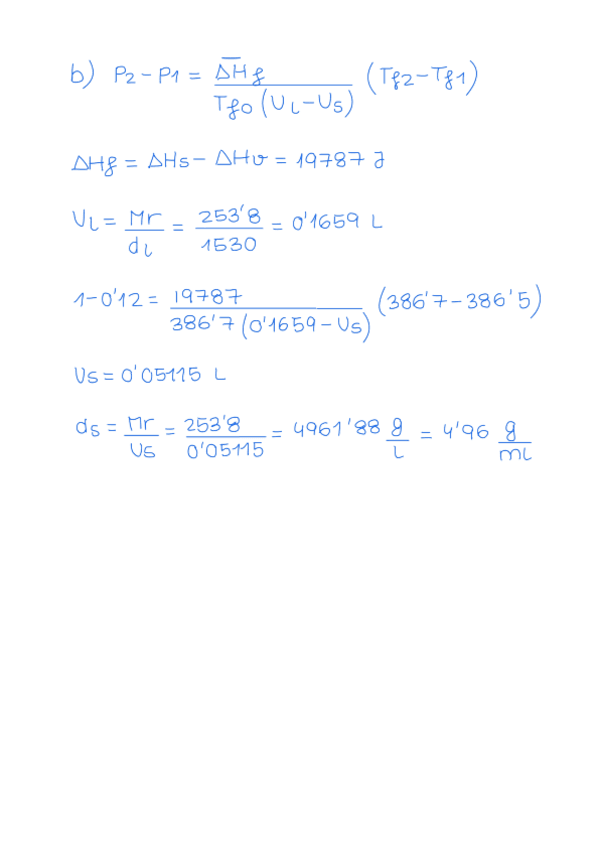 b) P2 - P1 = ΔH̅f / Tf0 (VL - Vs) (Tf2 - Tf1)
ΔHf = ΔHs - ΔHv = 19787 J
VL = Mr / dL = 253'8 / 1530 = 0'1659 L
1 - 0'12 = 19787 / 386'7 (0'1659 - Vs) (386'7 - 386'5)
Vs = 0'05115 L
ds = Mr / Vs = 253'8 / 0'05115 = 4961'88 g / L = 4'96 g / mL